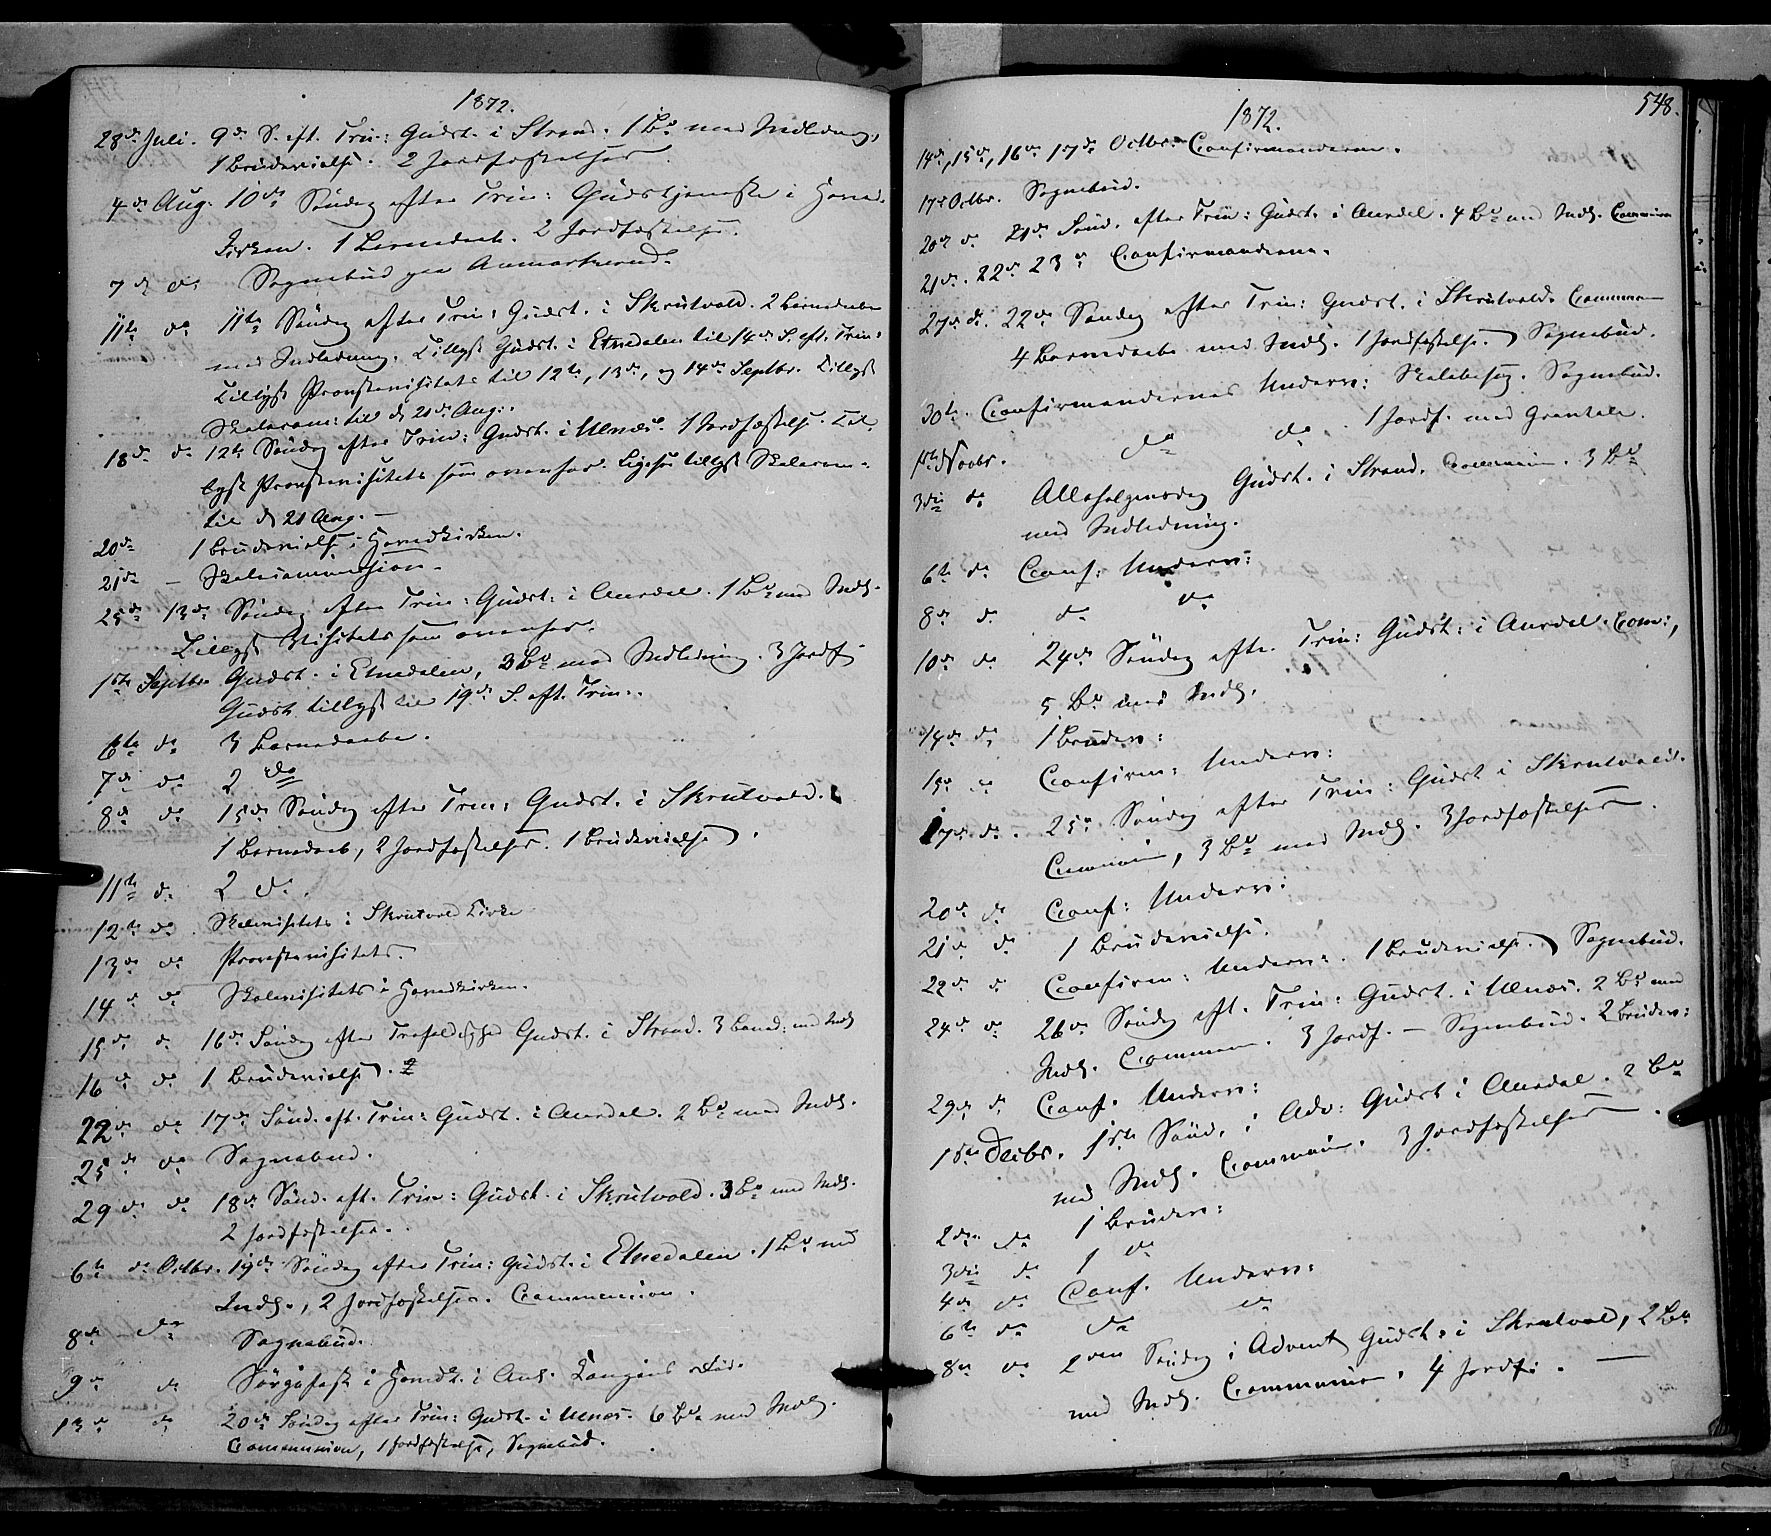 1872.
28de Juli. 9de S. eft. Trin: Gudst. i Strand. 1 Bd med Indledning,
1 Brudevielse. 2 Jordfæstelser.
4de Aug: 10de Søndag efter Trin: Gudstjeneste i Hoved-
kirken. 1 Barnedaab. 2 Jordfæstelser.
7de do Sognebud paa
11te do 11te Søndag efter Trin: Gudst. i Skrutvold. 2 Barnedaabe
med Indledning. Tillyst Gudst. i Etnedalen til 14de S. eft. Trin:
Tillyst Provstevisitats til 12te, 13de, og 14de Septbr. Tillyst
Skoleexam: til d. 21de Aug:.
18de do 12te Søndag efter Trin: Gudst. i Ulnæs. 1 Jordfæstelse. Til-
lyst Provstevisitats som ovenfor. Ligesaa tillyst Skoleexa-
til d. 21 Aug. —
20de 1 Brudevielse i Hovedkirken.
21de — Skolecommission.
25de 13de Søndag efter Trin: Gudst. i Aurdal. 1 Bd med Indl.
Tillyst Visitats som ovenfor.
1ste Septbr. Gudst. i Etnedalen, 3 Bd med Indledning. 3 Jordf.
Gudst. tillyst til 19de S. eft. Trin:.
6te do 3 Barnedaabe.
7de do 2 do
8de do 15de Søndag efter Trin: Gudst. i Skrutvold.
1 Barnedaab, 2 Jordfæstelser. 1 Brudevielse.
11te do 2 do.
12te do Skolevisitats i Skrutvold Kirke
13de do Provstevisitats.
14de do Skolevisitats i Hovedkirken.
15de do 16de Søndag efter Trefoldighed Gudst. i Strand. 3 Barned: med Indl
16de do 1 Brudevielse.
22de do 17de Sønd. eft. Trin: Gudst. i Aurdal. 2 Bd med Indl.
25de do Sognebud.
29de do 18de Sønd. eft. Trin: Gudst. i Skrutvold. 3 Bd med Indl.
2 Jordfæstelser.
6te do Octbr. 19de Søndag efter Trin: Gudst. i Etnedalen. 1 Bd med
Indl., 2 Jordfæstelser. Communion.
8de do Sognebud.
9de do Sørgefest i Hovedk. i Anl. Kongens Død.
13de do 20de Søndag efter Trin: Gudst. i Ulnæs. 6 Bd med Indl.
Communion, 1 Jordfæstelse, Sognebud.
548.
1872.
14de, 15de, 16de 17de Octbr. Confirmanderne.
17de Octbr. Sognebud.
20de do 21de Sønd. efter Trin: Gudst. i Aurdal. 4 Bd med Indl. Commun
21de. 22de 23de Confirmanderne.
27de do. 22de Søndag efter Trin: Gudst. i Skrutvold. Commun
4 Barnedaabe med Indl. 1 Jordfæstelse. Sognebud.
30te. Confirmandernes Underv: Skolebesøg. Sognebud.
1ste Novbr. do do. 1 Jordf. med Gravtale.
3die do Allehelgensdag Gudst. i Strand. Communion. 3 Bd
med Indledning.
6te do Conf: Underv:
8de do do do
10de do 24de Søndag efter Trin: Gudst: i Aurdal. Com:,
5 Bd med Indl.
14de do 1 Brudev:
15de do Confirm: Underv:
17de do. 25de Søndag efter Trin: Gudst i Skrutvold.
Communion, 3 Bd med Indl. 3 Jordfæstelser.
20de do Conf: Underv:
21de do 1 Brudevielse.
22de do Confirm: Underv:. 1 Brudevielse. Sognebud.
24de do 26de Søndag eft. Trin: Gudst. i Ulnæs. 2 Bd med
Indl. Commun. 3 Jordf. — Sognebud. 2 Brudev:
29de do Conf. Underv:
1ste Decbr. 1ste Sønd. i Adv: Gudst i Aurdal. 2 Bd
med Indl. Communion. 3 Jordfæstelser.
2den do 1 Brudev:
3die do 1 do
4de do Conf. Underv:
6te do do do
8de do 2den Søndag i Advent Gudst: i Skrutvold, 2 Bd
med Indl. Communion, 4 Jordf:. —